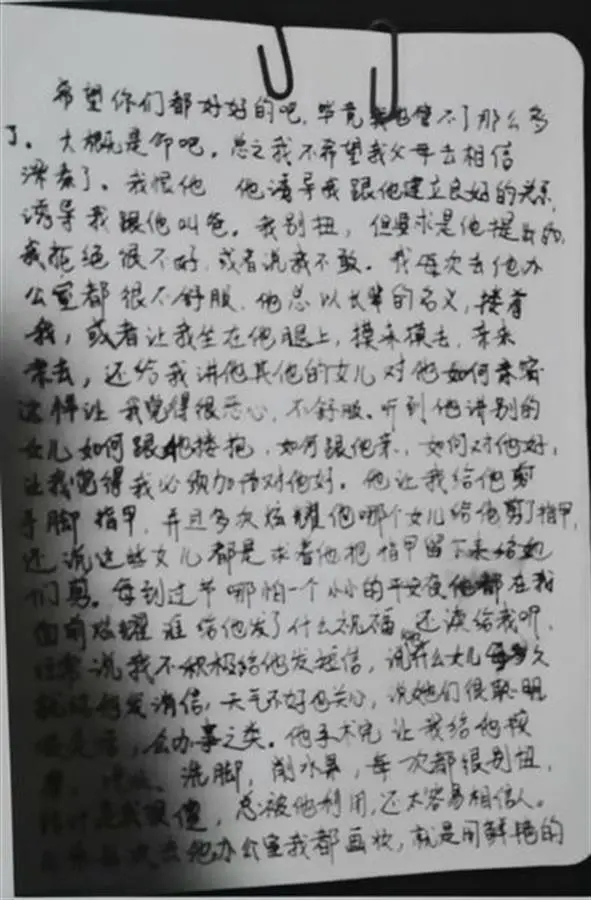 希望你们都好好的吧,毕竟我也管不了那么多
了。大概是命吧。总之我不希望我父母去相信
我恨他 他诱导我跟他建立良好的关系,
诱导我跟他叫爸。我别扭,但要求是他提出的,
我拒绝很不好,或者说我不敢。我每次去他办
公室都很不舒服,他总以长辈的名义,搂着
我,或者让我坐在他腿上,摸来摸去,亲来
亲去,还给我讲他其他的女儿对他如何亲密
这样让我觉得很恶心,不舒服。听到他讲别的
女儿如何跟他搂抱,如何跟他亲,如何对他好,
让我觉得我必须加倍对他好。他让我给他剪
手脚指甲,并且多次炫耀他哪个女儿给他剪了指甲,
还说这些女儿都是求着他把指甲留下来给她
们剪。每到过节哪怕一个小小的平安夜他都在我
面前炫耀谁给他发了什么祝福,还读给我听,
经常说我不积极给他发短信,说什么女儿每多久
给他发消息,天气不好也关心,说她们很聪明
会办事之类。他手术完让我给他按
洗脚,削水果,每次都很别扭,
总被他利用,还太容易相信人。
次去他办公室我都画妆,就是用鲜艳的